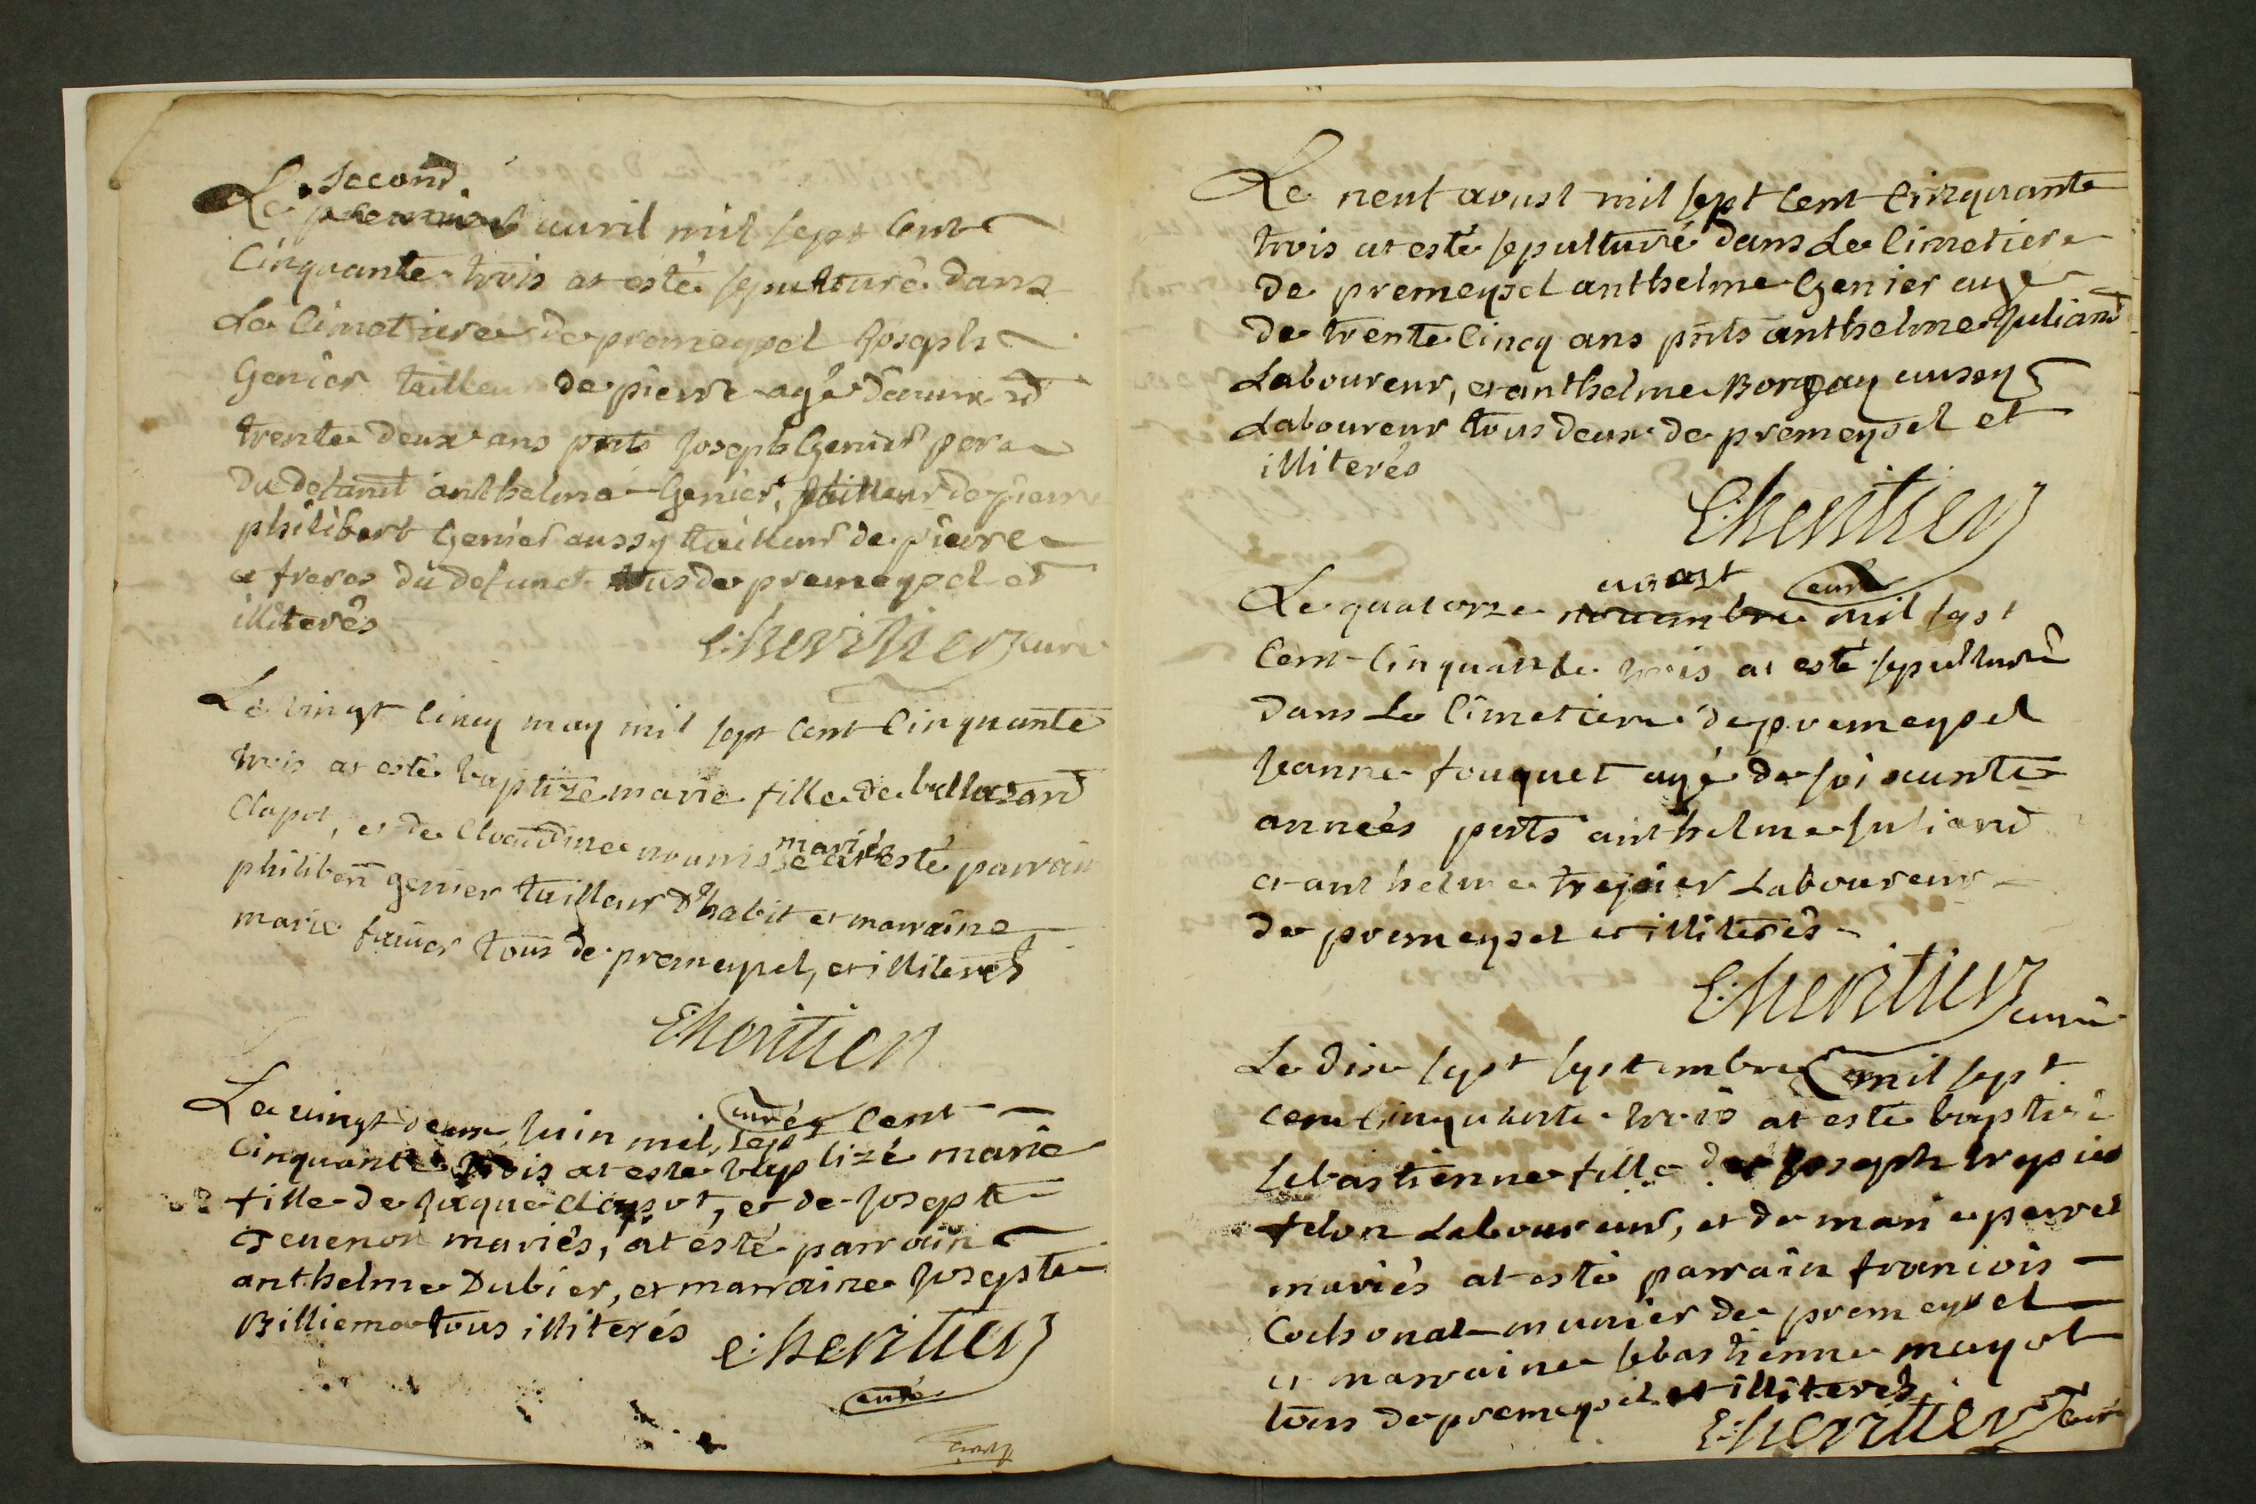 second
Le premier auril mil sept cent
Cinquante trois at esté sepulturé dans
Le Cimetiere de premeysel Joseph
Genier tailleur de pierre agé d'auuir
trente deux ans pnts Joseph Genier pere
Du defunct anthelme Genier, tailleur de pierre
philibert Genier aussy tailleur de pierre
et freres du defunct tous de premeysel et
illiterés
E: heritier curé
Le vingt cincq may mil sept cent Cinquante
trois at esté baptizé marie fille de baltazard
Clapot, et de Claudine mariés at esté parrain
philibert genier tailleur d'habit et marraine
marie tous de premeysel, et illiterés
E: heritier
curé
Le vingt deux Juin mil sept Cent
Cinquante trois at esté baptizé marie
fille de Jaque clapot, et de Josepte
Teuenon mariés, at esté parrain
anthelme Dubier, et marraine Josepte
Billiema tous illiterés
E: heritier
curé
Le neuf aoust mil sept Cent Cinquante
trois at esté sepulturé dans Le Cimetiere
de premeysel anthelme Genier agé
de trente Cincq ans pnts anthelme Juliand
Laboureur, et anthelme Borgay aussy
Laboureur tous deux de premeysel et
illiterés
E: heritier
curé
aoust
Le quatorze nouembre mil sept
Cent Cinquante trois at esté sepulturé
dans Le Cimetiere de premeysel
Jeanne fouquet agé de soixante
années pnts anthelme Juliand
et anthelme trepier Laboureur
de premeysel et illiterés
E: heritier curé
Le dix sept septembre mil sept
cent Cinquante trois at esté baptizé
sebastienne fille de Joseph trepier
felon Laboureur, et de marie perret
mariés at esté parrain francois
Cochonat munier de premeysel
et marraine sebastienne mayot
tous de premeysel et illiterés
E: heritier curé